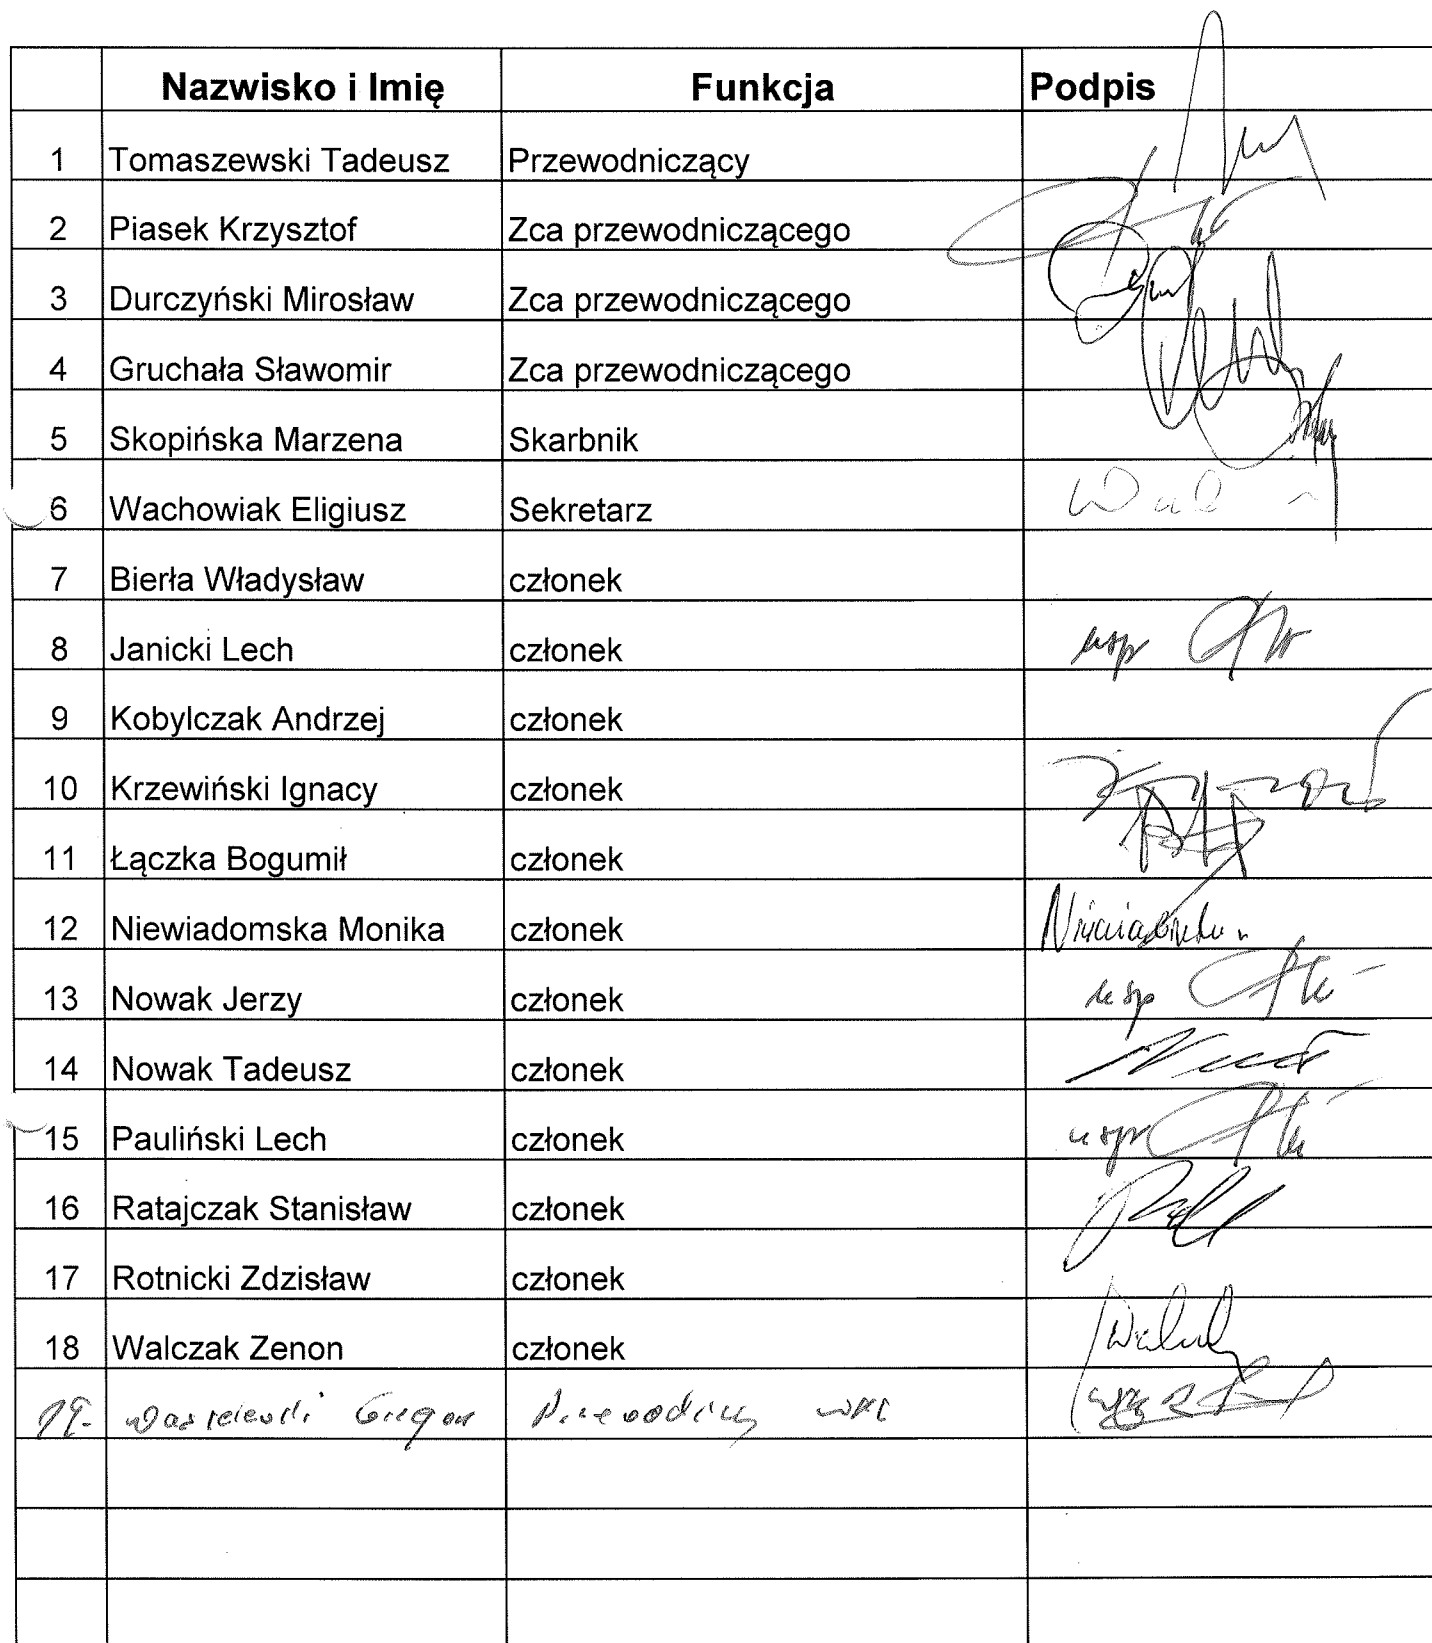 Nazwisko i Imię Funkcja Podpis
1 Tomaszewski Tadeusz Przewodniczący
2 Piasek Krzysztof Zca przewodniczącego
3 Durczyński Mirosław Zca przewodniczącego
4 Gruchała Sławomir Zca przewodniczącego
5 Skopińska Marzena Skarbnik
6 Wachowiak Eligiusz Sekretarz
7 Bierła Władysław członek
8 Janicki Lech członek usp
9 Kobylczak Andrzej członek
10 Krzewiński Ignacy członek
11 Łączka Bogumił członek
12 Niewiadomska Monika członek
13 Nowak Jerzy członek usp
14 Nowak Tadeusz członek
15 Pauliński Lech członek usp
16 Ratajczak Stanisław członek
17 Rotnicki Zdzisław członek
18 Walczak Zenon członek
19.